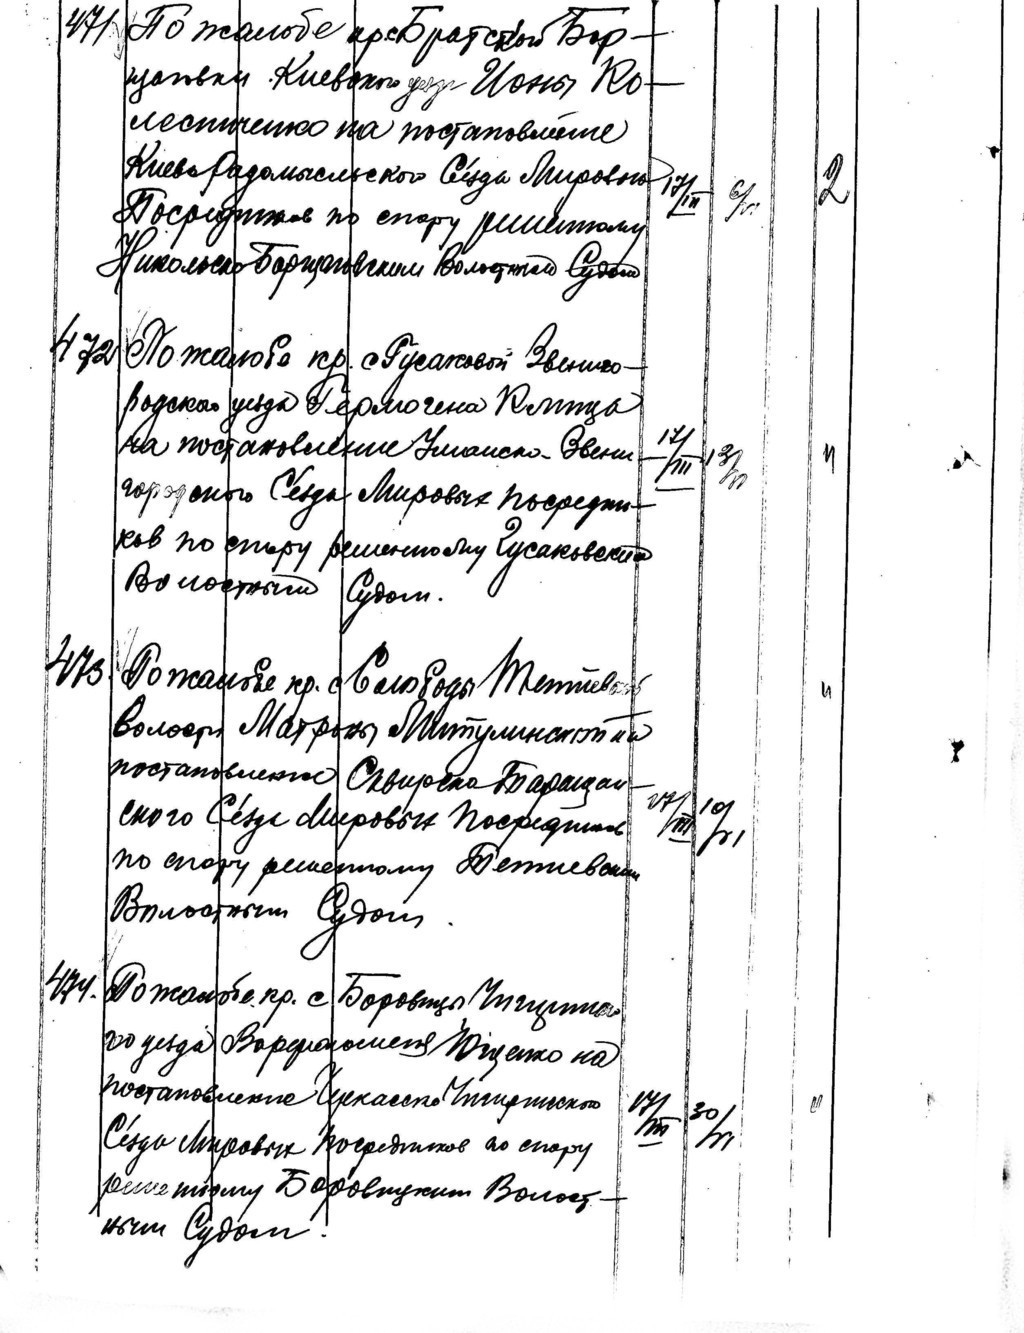 471 По жалобе кр. с. Братской Бор-
щаговки Киевского уезда Ионы Ко-
лесниченко на постановление
Киево Радомысльского Сезда Мировых
17/III 6/VI 2
Посредников по спору решенному
Никольско Борщаговским Волостным Судом
472 По жалобе кр. с Гусаковой Звениго-
родского уезда Гермогена Клища
на постановление Уманско-Звени
17/III 13/VI "
городского Сезда Мировых Посредни-
ков по спору решенному Гусаковским
Волостным Судом.
473. По жалобе кр. с Слободы Тетиевской
"
волости Матроны Митулинской на
постановление Сквирско Таращан-
17/III 10/VI
ского Сезда Мировых Посредников
по спору решенному Тетиевским
Волостным Судом.
474. По жалобе кр. с Боровицы Чигиринско
го уезда Варфоломея Ющенко на
постановление Черкасско Чигиринского
17/III 30/VI "
Сезда Мировых Посредников по спору
решенному Боровицким Волост-
ным Судом.